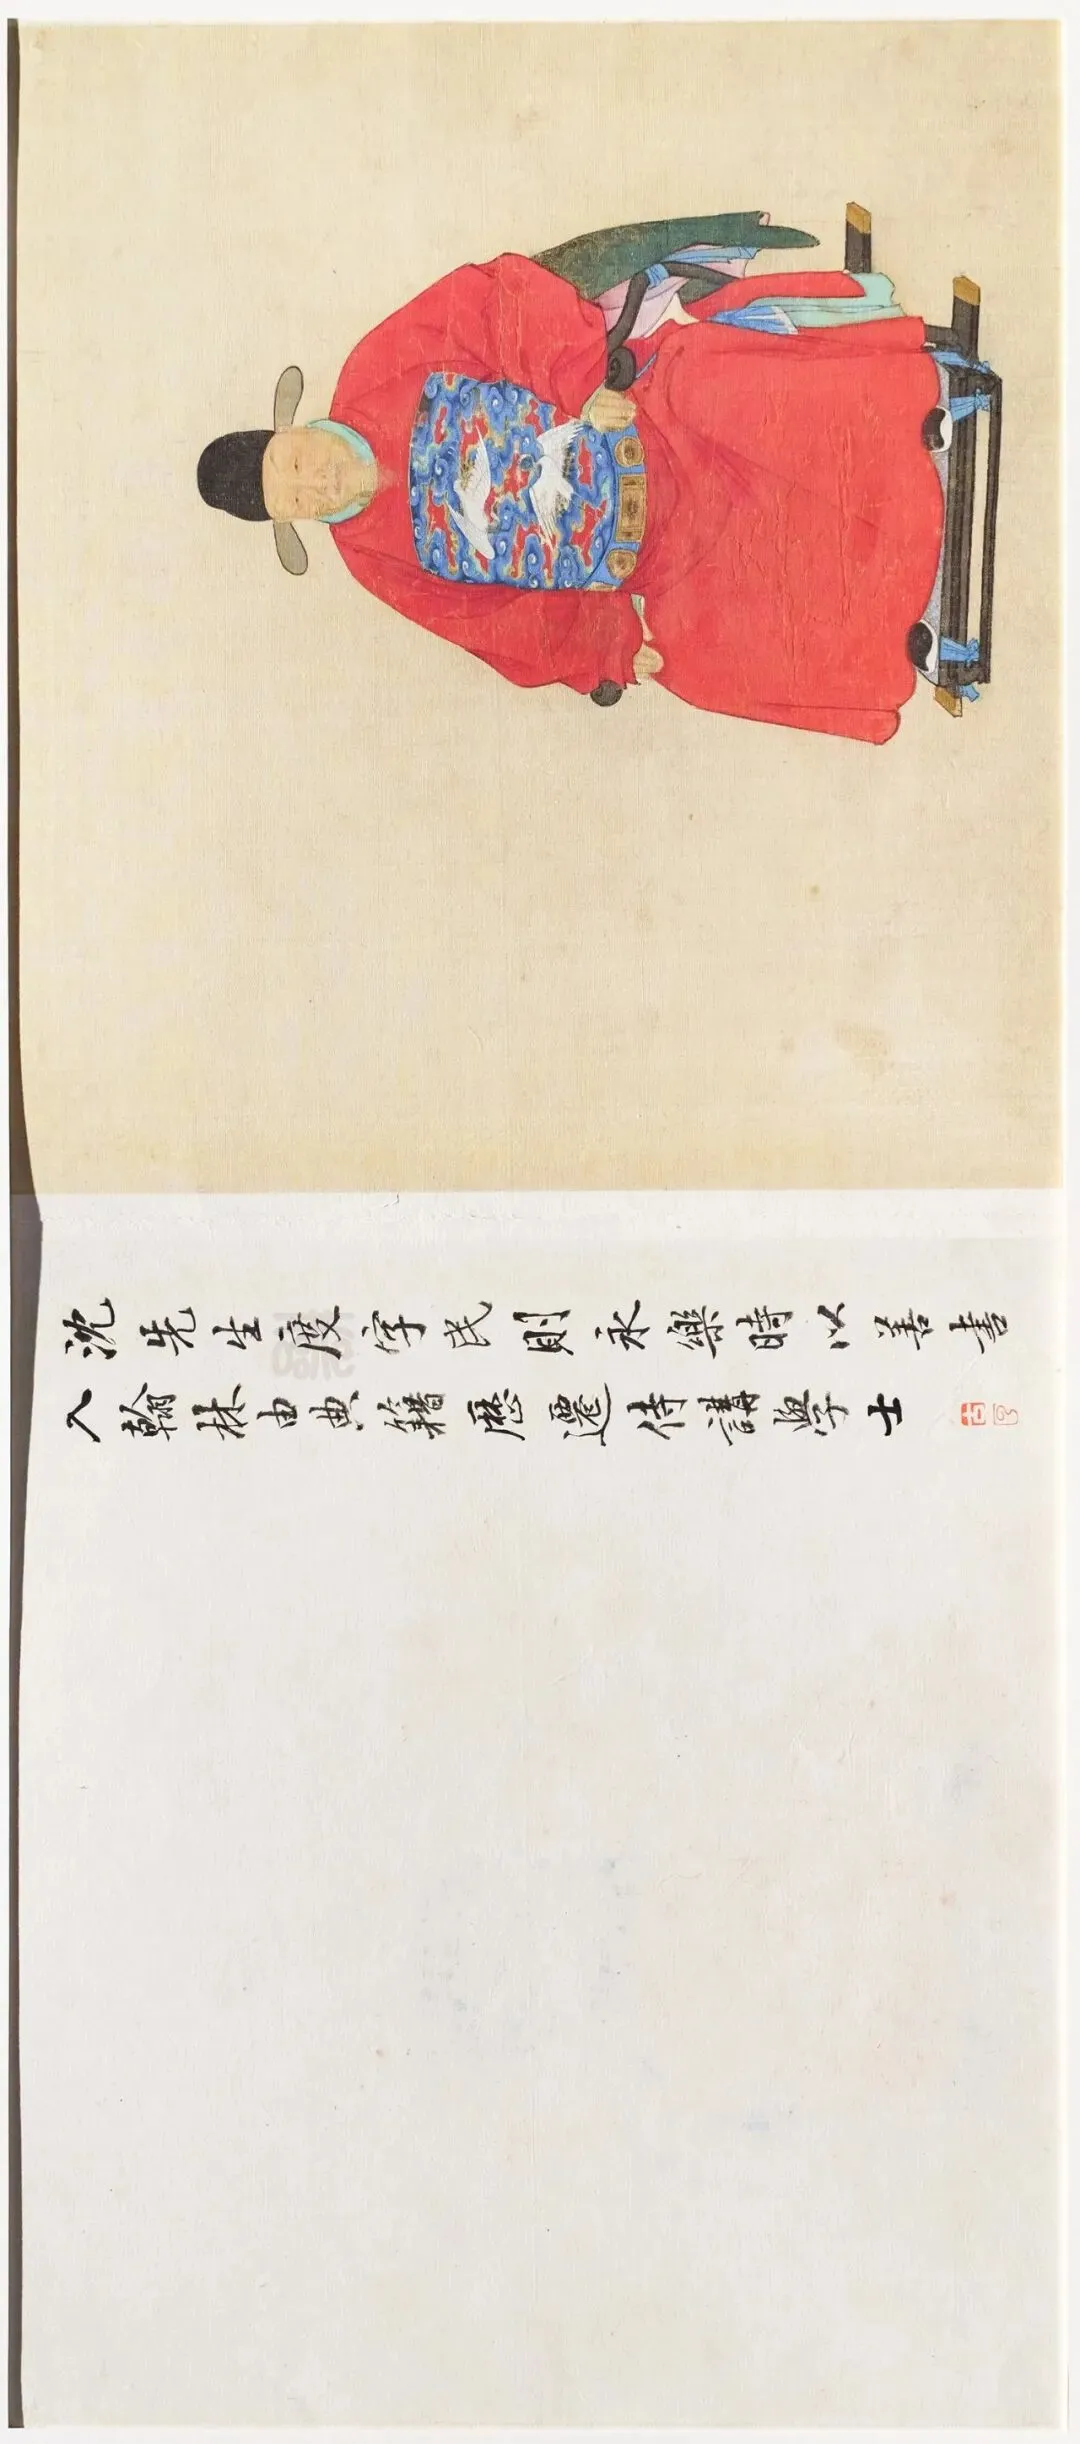 沈先生度字民則永樂時以善書
入翰林由典籍歷遷侍講學士